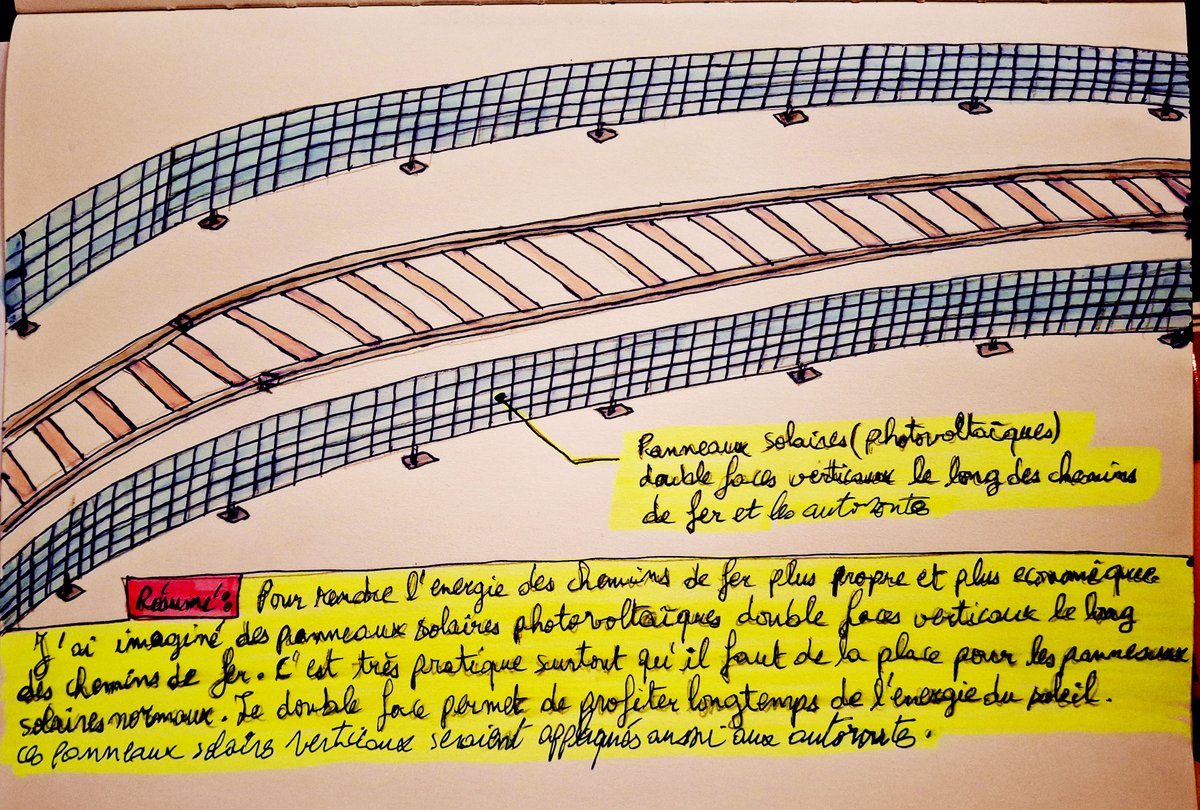 Panneaux solaires (photovoltaïques)
double faces verticaux le long des chemins
de fer et les autoroute
Résumé: Pour rendre l'énergie des chemins de fer plus propre et plus economique.
J'ai imaginé des panneaux solaires photovoltaïques double faces verticaux le long
des chemins de fer. C'est très pratique surtout qu'il faut de la place pour les panneaux
solaires normaux. Le double face permet de profiter longtemps de l'énergie du soleil.
ces panneaux solaire verticaux seraient appliqués aussi aux autoroute.